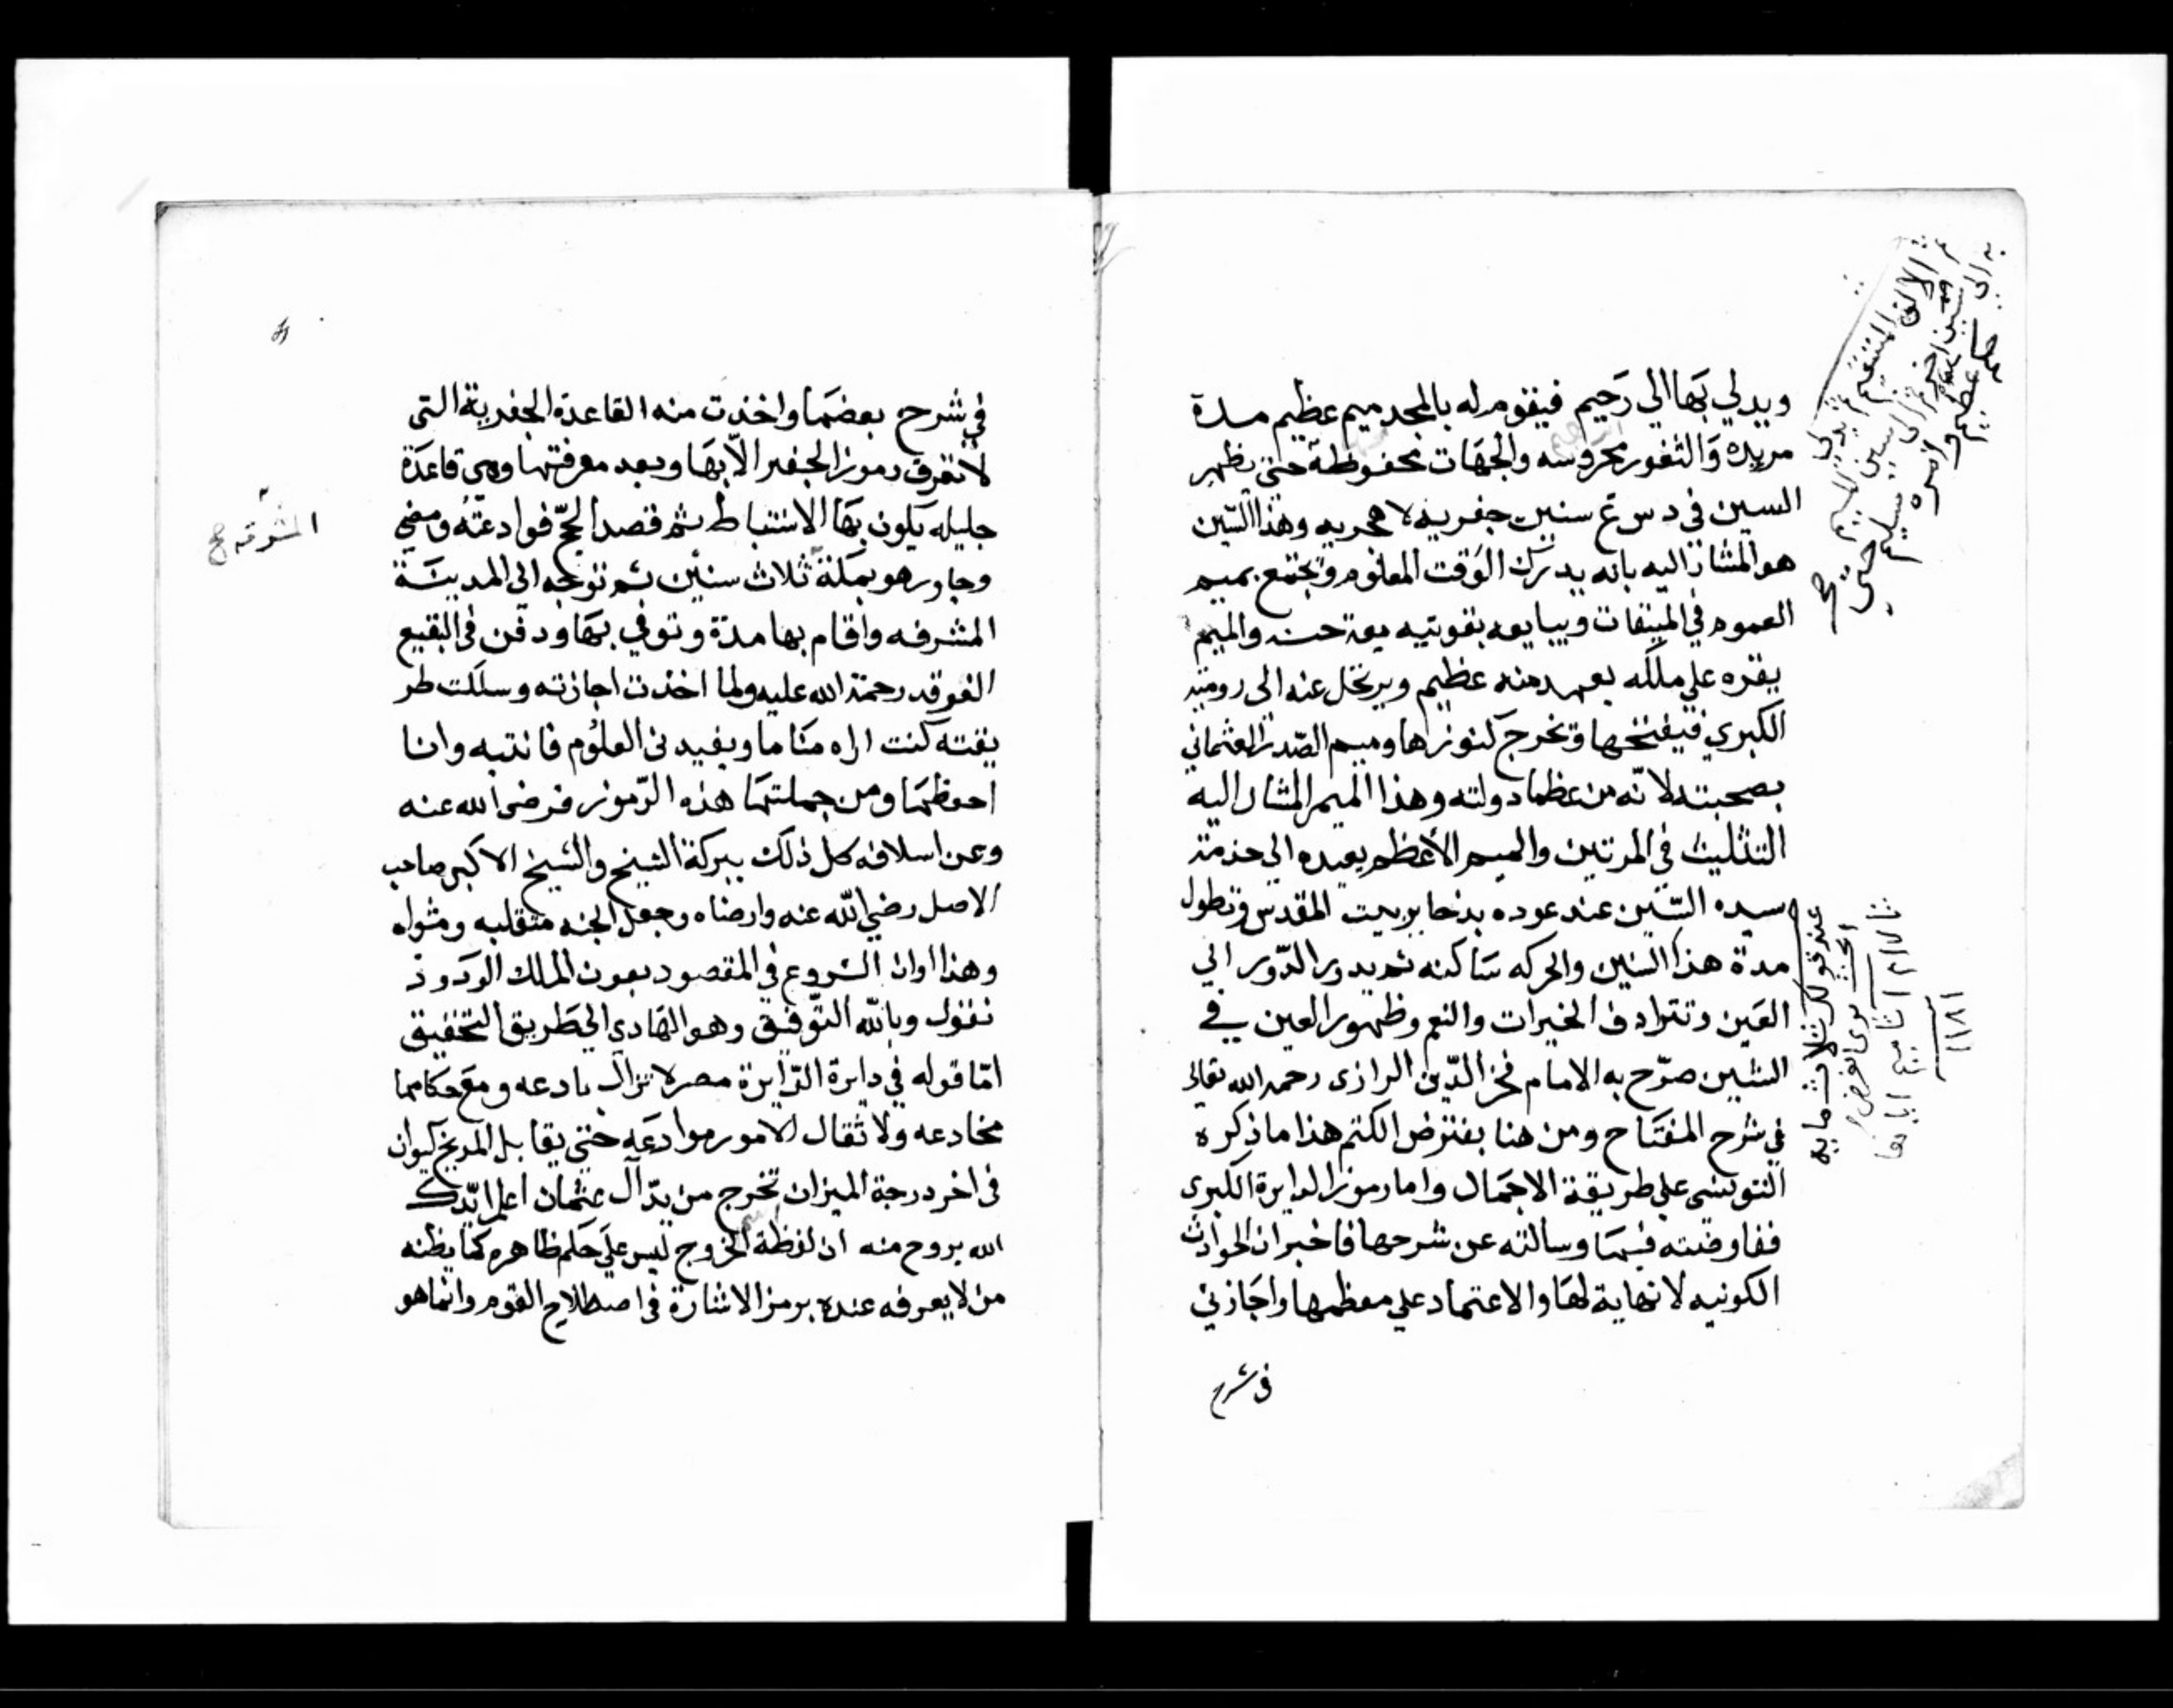 ويدلي بها الي رحيم فيقوم له بالمجد ميم عظيم مدة
مريده والثغور محروسه والجهات محفوظة حتى يظهر
السين في د س غ سنين جفريه لا هجريه وهذا السين
هو المشار اليه بانه يدرك الوقت المعلوم وتجتمع بميم
العموم في الميقات ويبايعه بقوتيه بيعة حسنه والميم
يقره علي ملكه بعهد منه عظيم ويرتحل عنه الى رومية
الكبري فيفتحها وتخرج كنوزها وميم الصدر العثماني
بصحبته لانه من عظما دولته وهذا الميم المشار اليه
التثليث في المرتين والميم الأعظم يعيده الي خدمة
سيده السين عند عوده بدخا بر بيت المقدس وتطول
مدة هذا السين والحركه ساكنه ثم يدور الدور الي
العين وتترادف الخيرات والنعم وظهور العين في
الشين صرح به الامام فخر الدين الرازى رحمه الله تعالى
في شرح المفتاح ومن هنا يفترض الكتم هذا ما ذكره
التونسى علي طريقة الاجمال واما رموز الدايرة الكبرى
ففاوضته فيها وسالته عن شرحها فاخبر ان الحوادث
الكونيه لا نهاية لها والاعتماد علي معظمها واجازني
فى شرح
عند قولك ثلاث مايه
١١٨١
في شرح بعضها واخذت منه القاعدة الجفرية التى
لا تعرف رموز الجفر الا بها وبعد معرفتها وهى قاعدة
جليله يكون بها الاستنباط ثم قصد الحج فوادعته ومضي
وجاور هو بمكة ثلاث سنين ثم توجه الى المدينة
المشرفه واقام بها مدة وتوفي بها ودفن في البقيع
الغرقد رحمة الله عليه ولما اخذت اجازته وسلكت طر
يقته كنت اراه مناما ويفيدنى العلوم فانتبه وانا
احفظها ومن جملتها هذه الرموز فرضى الله عنه
وعن اسلافه كل ذلك ببركة الشيخ والشيخ الاكبر صاحب
الاصل رضي الله عنه وارضاه وجعل الجنه متقلبه ومثواه
وهذا اوان الشروع في المقصود بعون الملك الودود
نقول وبالله التوفيق وهو الهادي الى طريق التحقيق
اما قوله في دايرة الدايرة مصر لا تزال بادعه ومع حكامها
مخادعه ولا ثقال الامور موادعه حتى يقابل المريخ كيوان
فى اخر درجة الميزان تخرج من يد آل عثمان اعلم ايدك
الله بروح منه ان لفظة الخروج ليس علي حكم ظاهره كما يظنه
من لا يعرفه عنده برمز الاشارة في اصطلاح القوم وانما هو